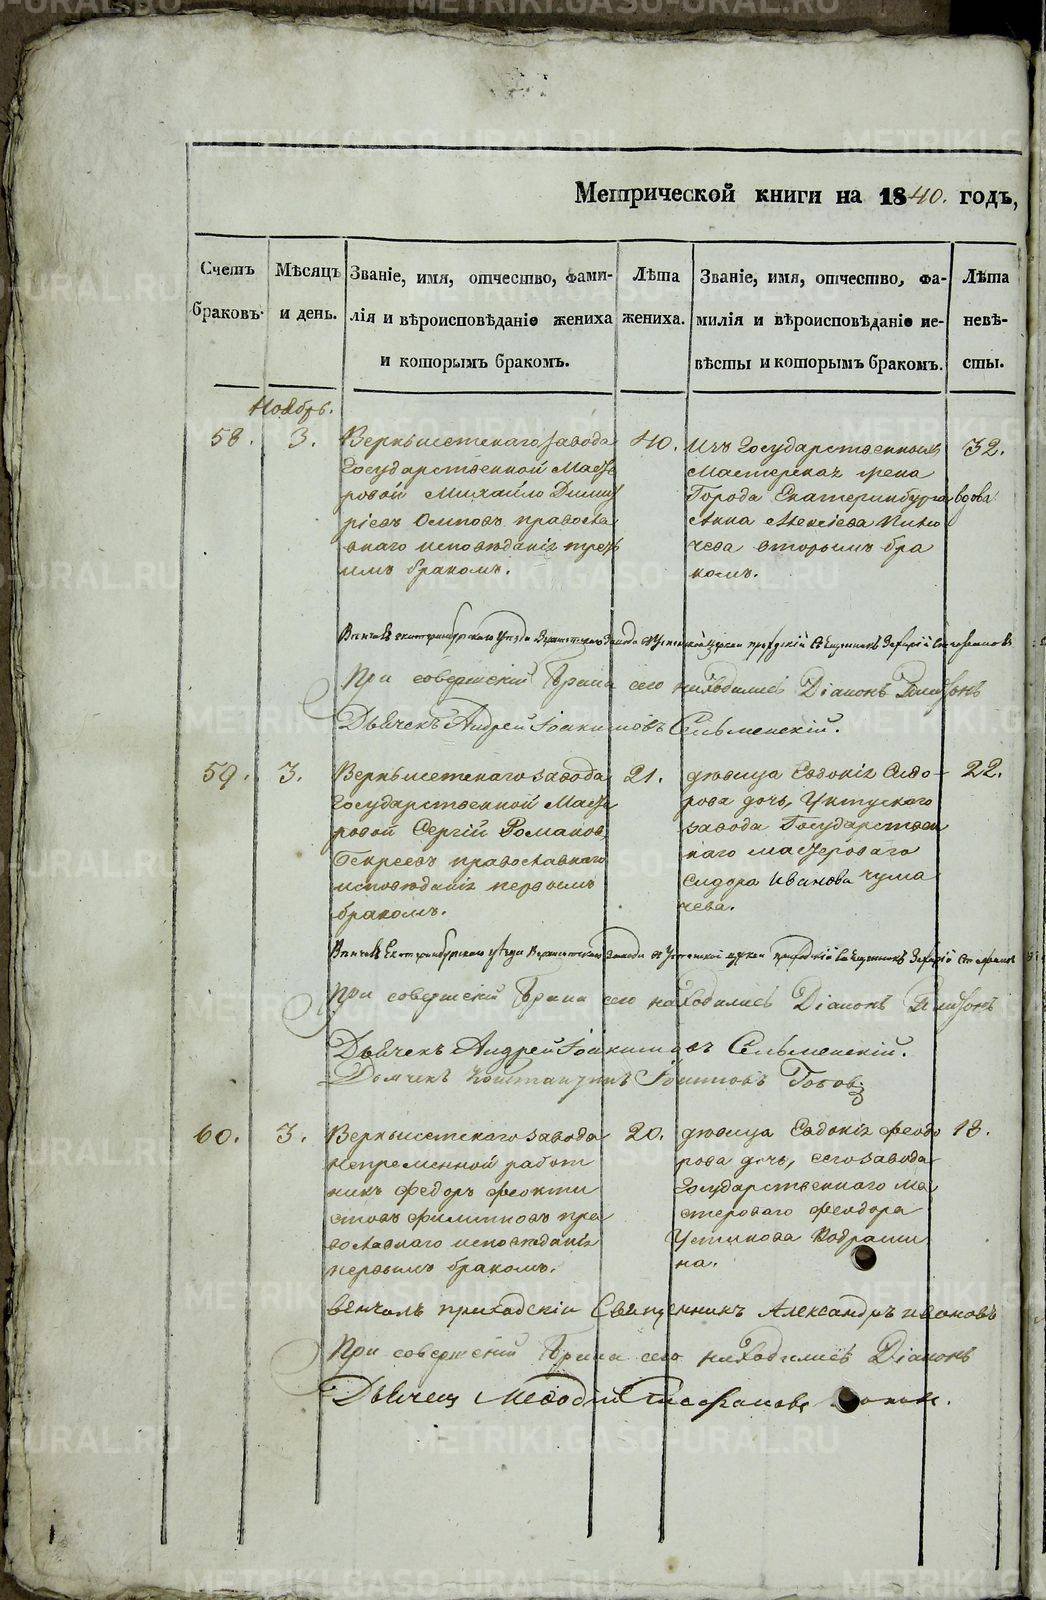 Метрической книги на 1840. годъ,
Счетъ браковъ.
Мѣсяцъ и день.
Званіе, имя, отчество, фами-
лія и вѣроисповѣданіе жениха
и которымъ бракомъ.
Лѣта
жениха.
Званіе, имя, отчество, фа-
милія и вѣроисповѣданіе не-
вѣсты и которымъ бракомъ.
Лѣта
невѣ-
сты.
Ноябрь.
58. 3.
Верхъисетскаго завода
Государственной Масте
ровой Михайло Дмит
ріевъ Осиповъ правосла
внаго исповѣданія треть
имъ бракомъ.
40.
Изъ Государственныхъ
Мастерскихъ жена
Города Екатеринбурга вдова
Анна Алексіева
чева вторымъ бра
комъ.
32.
Вѣнчалъ Екатеринбургскаго уѣзда Верхъисетскаго Завода Успенской церкви приходскій Священникъ Захарій
При совершеніи Брака сего находились Діаконъ
Дьячекъ Андрей Іоакимовъ Сельменскій.
59. 3.
Верхъисетскаго завода
Государственной Масте
ровой Сергій Романовъ
православнаго
исповѣданія первымъ
бракомъ.
21.
дѣвица Евдокія Сидо
рова дочь, Уктускаго
завода Государствен
наго мастероваго
Сидора Иванова Чума
чева.
22.
Вѣнчалъ Екатеринбургскаго уѣзда Верхъисетскаго завода Успенской церкви приходскій Священникъ Захарій
При совершеніи Брака сего находились Діаконъ
Дьячекъ Андрей Іоакимовъ Сельменскій.
Дьячекъ Константинъ
60. 3.
Верхъисетскаго завода
непременной работ
никъ Федоръ Феокти
стовъ Филиповъ пра
вославнаго исповѣданія
первымъ бракомъ.
20.
дѣвица Евдокія Феодо
рова дочь, сего завода
Государственнаго ма
стероваго Феодора
Устинова Кодраши
на.
18.
вѣнчалъ приходскіи Священникъ Александръ Ивановъ
При совершеніи Брака сего находились Діаконъ
Дьячекъ Мефодій
METRIKI.GASO-URAL.RU